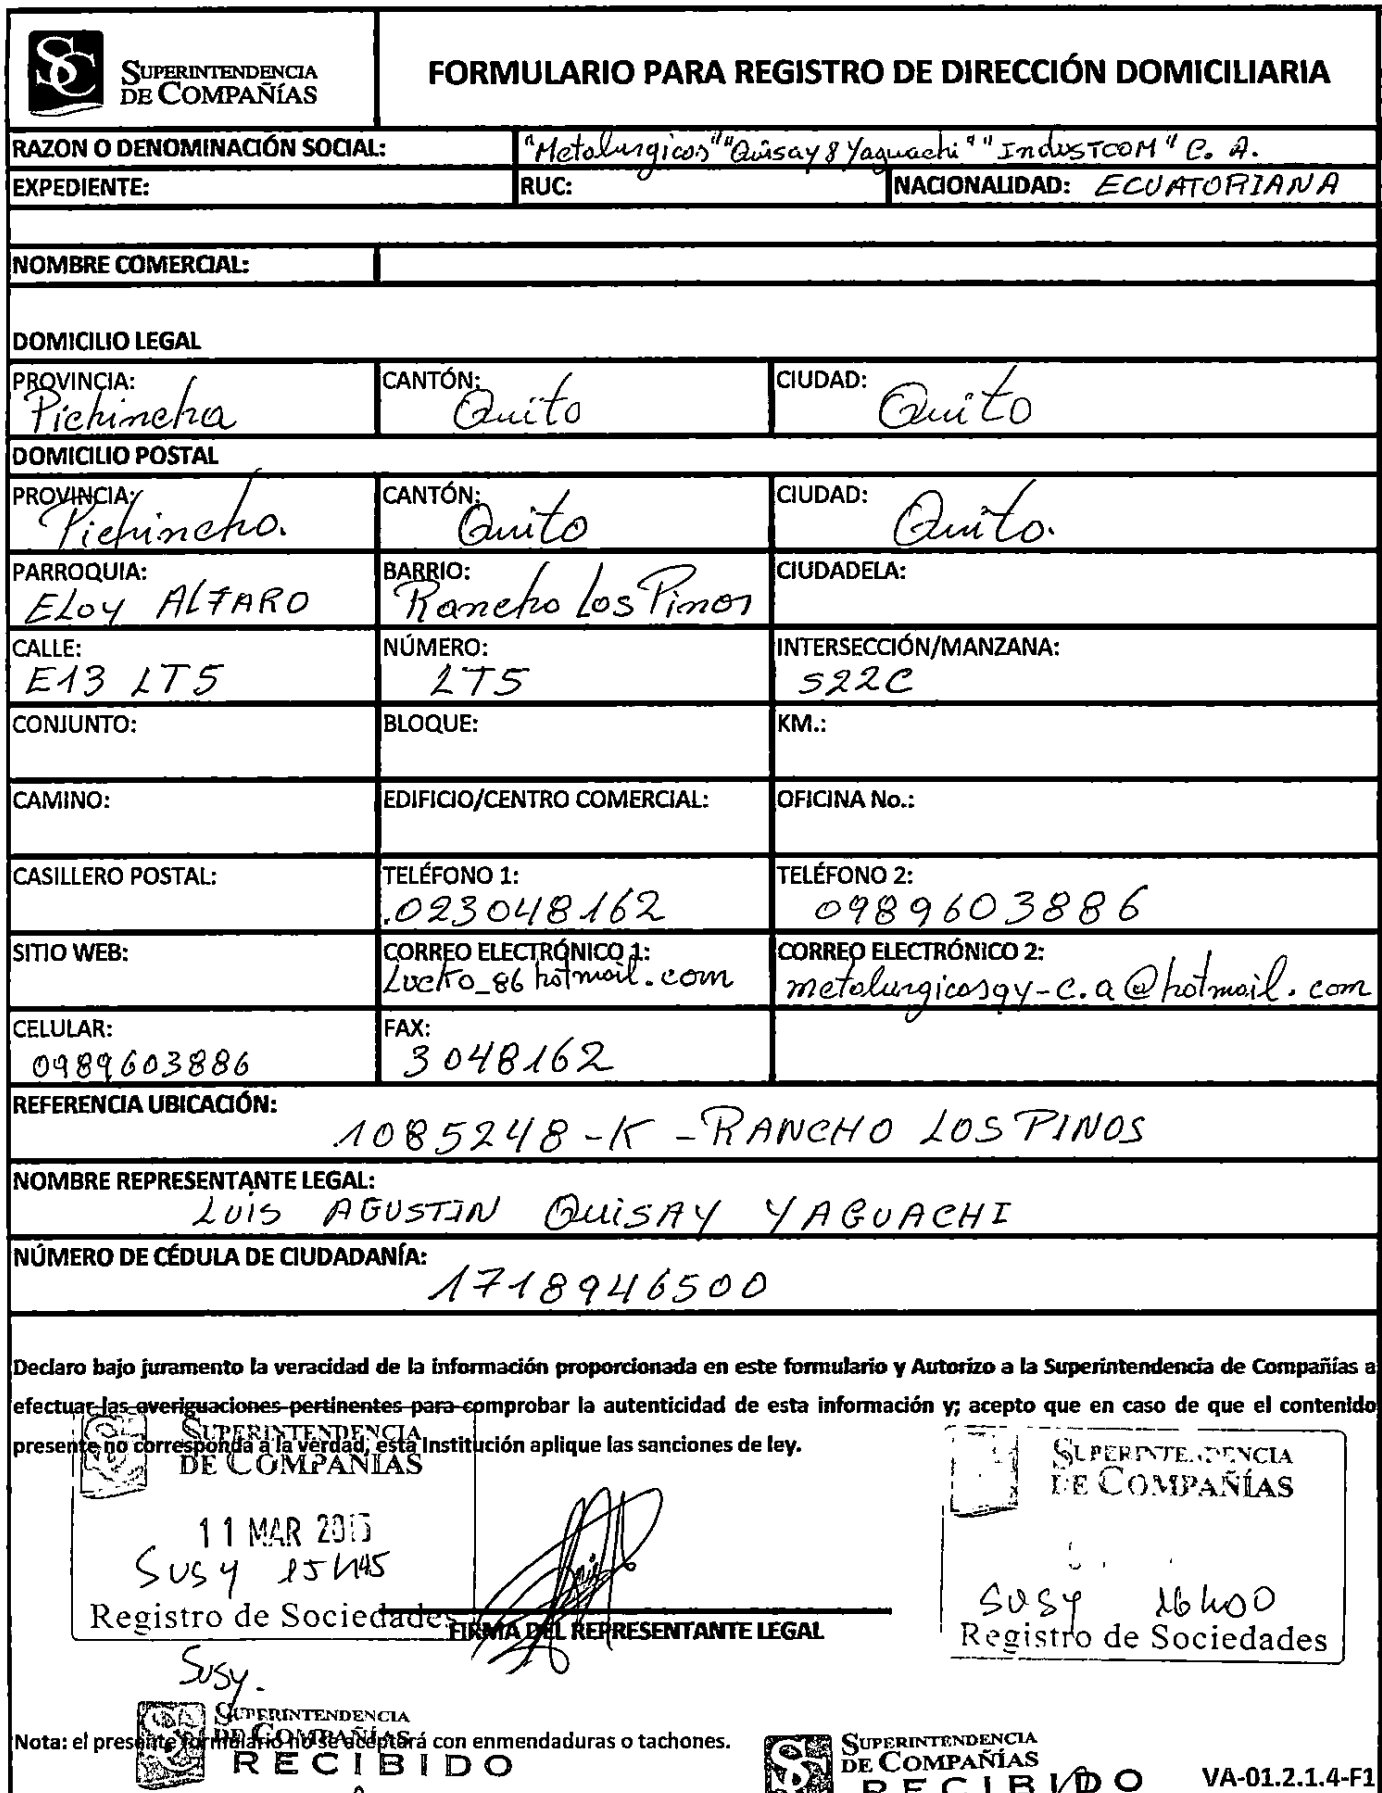 SUPERINTENDENCIA
DE COMPAÑÍAS
FORMULARIO PARA REGISTRO DE DIRECCIÓN DOMICILIARIA
RAZON O DENOMINACIÓN SOCIAL: "Metalurgicos" "Quisay & Yaguachi" "IndusTCOM" C. A.
EXPEDIENTE: RUC: NACIONALIDAD: ECUATORIANA
NOMBRE COMERCIAL:
DOMICILIO LEGAL
PROVINCIA: CANTÓN: CIUDAD:
Pichincha Quito Quito
DOMICILIO POSTAL
PROVINCIA: CANTÓN: CIUDAD:
Pichincha. Quito Quito.
PARROQUIA: BARRIO: CIUDADELA:
ELOY ALFARO Rancho Los Pinos
CALLE: NÚMERO: INTERSECCIÓN/MANZANA:
E13 LT5 LT5 S22C
CONJUNTO: BLOQUE: KM.:
CAMINO: EDIFICIO/CENTRO COMERCIAL: OFICINA No.:
CASILLERO POSTAL: TELÉFONO 1: TELÉFONO 2:
.023048162 0989603886
SITIO WEB: CORREO ELECTRÓNICO 1: CORREO ELECTRÓNICO 2:
Lucko_86 hotmail.com metalurgicosqy-c.a@hotmail.com
CELULAR: FAX:
0989603886 3048162
REFERENCIA UBICACIÓN:
1085248-K - RANCHO LOS PINOS
NOMBRE REPRESENTANTE LEGAL:
LUIS AGUSTIN QUISAY YAGUACHI
NÚMERO DE CÉDULA DE CIUDADANÍA:
1718946500
Declaro bajo juramento la veracidad de la información proporcionada en este formulario y Autorizo a la Superintendencia de Compañías a
efectuar las averiguaciones pertinentes para comprobar la autenticidad de esta información y; acepto que en caso de que el contenido
presente no corresponda a la verdad, esta Institución aplique las sanciones de ley.
SUPERINTENDENCIA
DE COMPAÑÍAS
11 MAR
Susy 15h45
Registro de Sociedades
Susy.
FIRMA DEL REPRESENTANTE LEGAL
SUPERINTENDENCIA
DE COMPAÑÍAS
Susy 16h00
Registro de Sociedades
Nota: el presente formulario no se aceptará con enmendaduras o tachones.
SUPERINTENDENCIA
DE COMPAÑÍAS
RECIBIDO
SUPERINTENDENCIA
DE COMPAÑÍAS
RECIBIDO
VA-01.2.1.4-F1